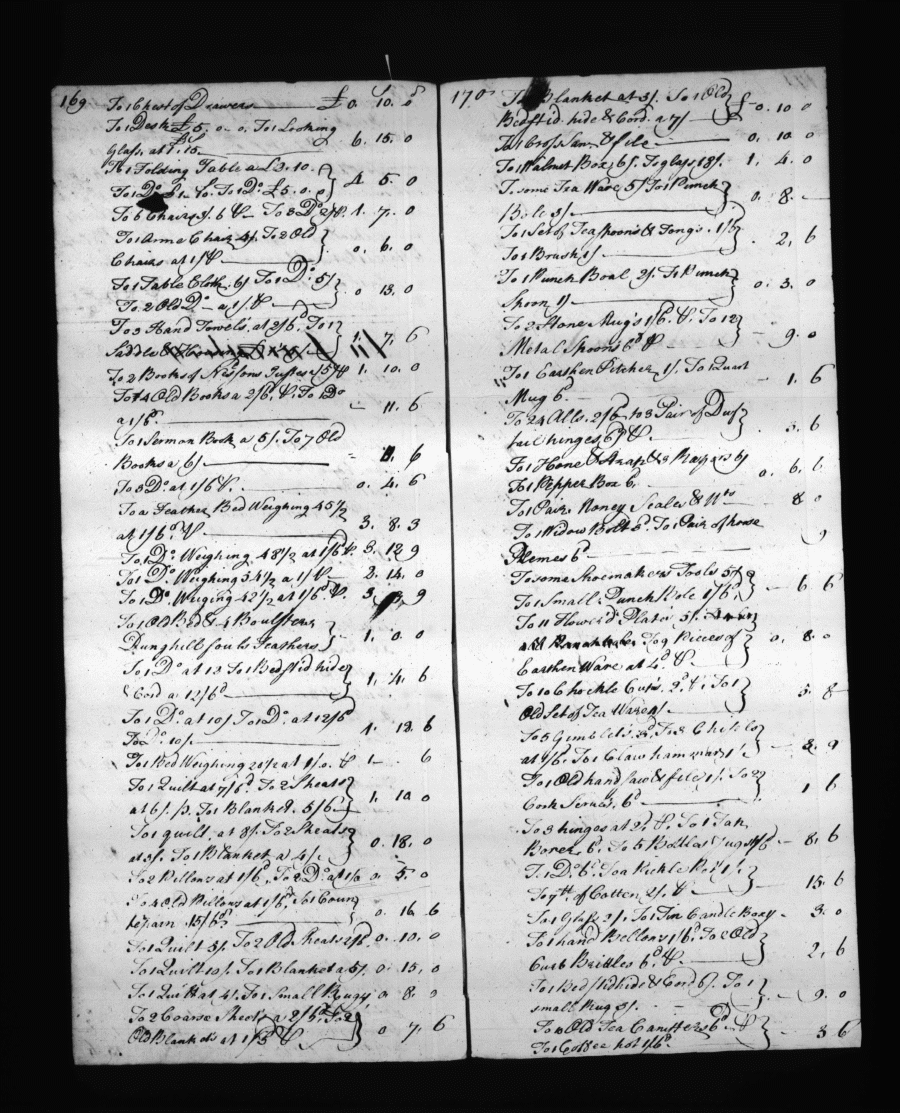 169
To 1 Chest of Drawers £0. 10. 0
To 1 Desk £5. 0-0. To 1 Looking
Glass. at £1.15. 6. 15. 0
To 1 Folding Table a £3. 10.
To 1 Do. To 1 Do. £5. 0. 0 4 5. 0
To 6 Chairs 3/. 6 To 3 Do 2/ 1. 7. 0
To 1 Arme Chair 4/. To 2 Old
Chairs at 1/ 0. 6. 0
To 1 Table Cloth. 6/ To 1 Do. 5/
To 2 Old Do- a 1/ 0 13. 0
To 3 Hand Towels. at 2/6. To 1
Saddle & 1. 7. 6
To 2 Books of Justes a 15/ 1. 10. 0
To 4 Old Books a 2/6. To 1 Do
a 1/6. - 11. 6
To 1 Sermon Book a 5/. To 7 Old
Books a 6/ 6
To 3 Do at 1/6 0. 4. 6
To a Feather Bed Weighing 45 1/2
at 1/6 3. 8. 3
To 1 Do. Weighing 48 1/2 at 1/6 3. 12 9
To 1 Do. Weighing 54 1/2 a 1/ 2. 14. 0
To 1 Do. Weiging 42 1/2 at 1/6 3 9
To 1 Old Bed & 4 Boulsters
Dunghill fouls Feathers 1. 0. 0
To 1 Do at 13 To 1 Bedstid hide
Cord a 12/6 1. 4. 6
To 1 Do. at 10/ To 1 Do. at 12/6
To Do. 10/. 4. 13. 6
To 1 Bed Weighing at 1/ 1- 6
To 1 Quilt at 7/6. To 2 Sheats
at 6/. To 1 Blanket. 5/6 1. 10 0
To 1 quilt. at 8/. To 2 Sheats
at 3/. To 1 Blanket a 4/. 0. 18. 0
To 2 Pillows at 1/6. To 2 Do. at 1/ 0. 5. 0
To 4 Old Pillows at 1/6. To 1 Coun
terpain. 15/6 0. 16 6
To 1 Quilt 5/. To 2 Old Sheats 2/6 0. 10. 0
To 1 Quilt 10/. To 1 Blanket a 5/. 0. 15. 0
To 1 Quilt at 4/. To 1 Small Rugg 0. 8. 0
To 2 Coarse Sheets a 2/6. To 2
Old Blankets at 1/3 0 7. 6
170
To Blanket at 3/. To 1 Old
Bedstid. hide & Cord. a 7/ £-0. 10 0
To 1 Cross Saw & file 0. 10. 0
To 1 Walnet Box, 6/. To glass 18/. 1. 4. 0
To some Tea Ware 5/ To 1 Punch
Bole 3/ 0. 8. -
To 1 Set of Teaspoons & Tongs. 1/
To 1 Brush 1/ 2, 6
To 1 Punch Boal 2/. To 1 Punch
Spoon 1/ 0. 3. 0
To 2 Stone Mug's 1/6. To 12
Metal Spoons 6d 9. 0
To 1 Earthen Pitcher 1/. To 1 Quart
Mug 6. 1. 6
To 24 Alls. 2/6 to 3 Pair of Duf
tail hinges 6 3. 6
To 1 Hone & & 3 6/
To 1 Pepper Box 6. 0. 6. 6
To 1 Pair Money Scales & Wts 8 0
To 1 Widow Bolt. To 1 Pair of horse
Flemes 6d
To some Shoemakers Tools 5/
To 1 Small Punch Bole 1/6 6 6
To 11 Flower'd Plates 5/.
To 9 Pieces of
Earthen Ware at 4d. 0. 8. 0
To 10 Chockle Cups. 3d. To 1
Old Set of Tea Ware 5. 8
To 5 Gimblets. To 3 Chisels
at 1/6. To 1 Claw hammar 1/. 8. 9
To 1 Old hand saw & file 1/. To 2
Cork Scrues. 6d 1 6
To 3 hinges at 2d. To 1 Tap
Borer 6d. To 5 Bottles 8. 6
To 1 Do. 6d. To a Pickle Pot 1/.
To 7 lb. of Cotten. 2/. 15. 6
To 1 Glass 2/. To 1 Tin Candle Boxy 3. 0
To 1 hand Bellows 1/6. To 2 Old
Curb Brittles 6d. 2, 6
To 1 Bedstid hide & Cord 6/. To 1
small Rug 3/. 9. 0
To Old Tea Canisters 6d
To 1 Coffee pot 1/6. 3 6